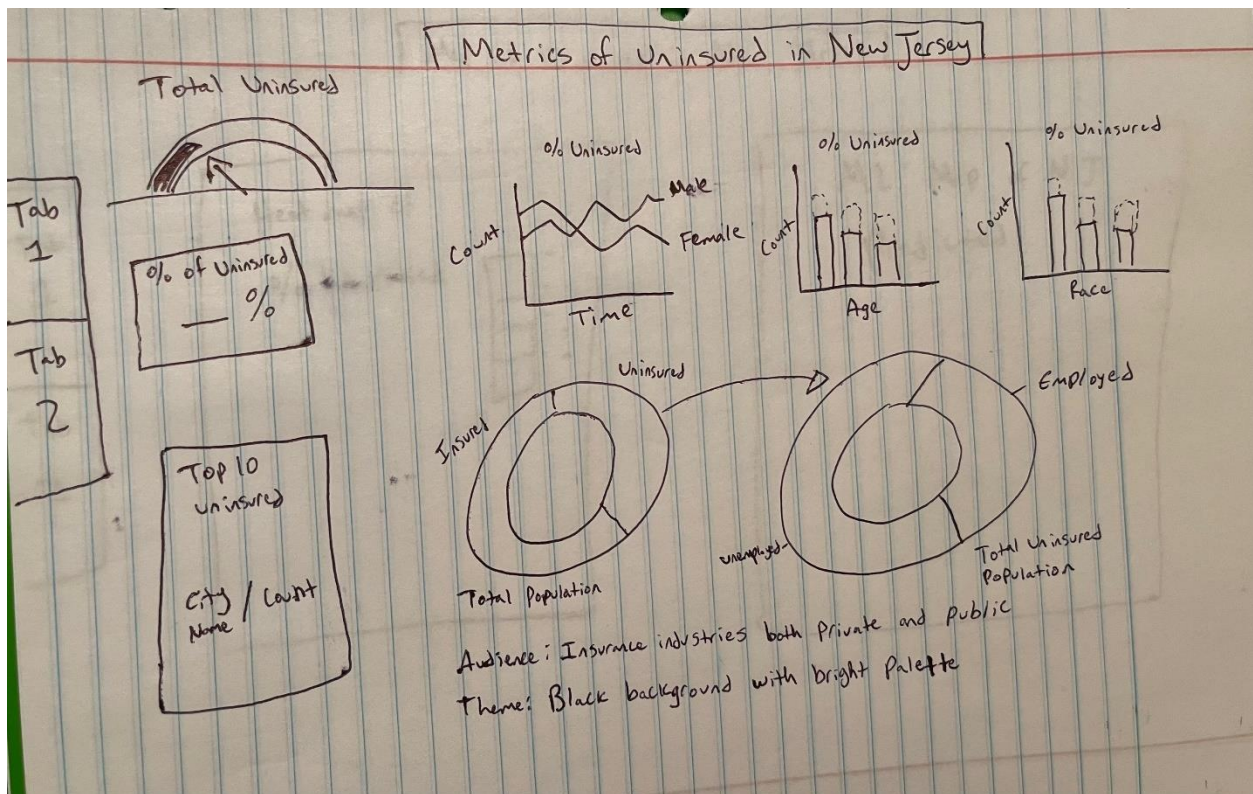 Metrics of Uninsured in New Jersey
Total Uninsured
Tab
1
Tab
2
% of Uninsured
__ %
Top 10
Uninsured
City / Count
Name
% Uninsured
Count
Male
Female
Time
% Uninsured
Count
Age
% Uninsured
Count
Race
Insured
Uninsured
Total Population
Employed
Unemployed
Total Uninsured
Population
Audience: Insurance industries both Private and Public
Theme: Black background with bright Palette